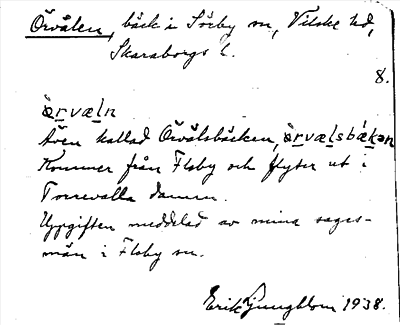 Örvålen, bäck i Sörby sn, Vilske hd,
Skaraborgs l.
8.
ö̀rvæln
Även kallad Örvålsbäcken, ö̀rvælsbäkən
Kommer från Floby och flyter ut i
Torrevalla dammen.
Uppgiften meddelad av mina sages-
män i Floby sn.
Erik Ljungblom 1938.